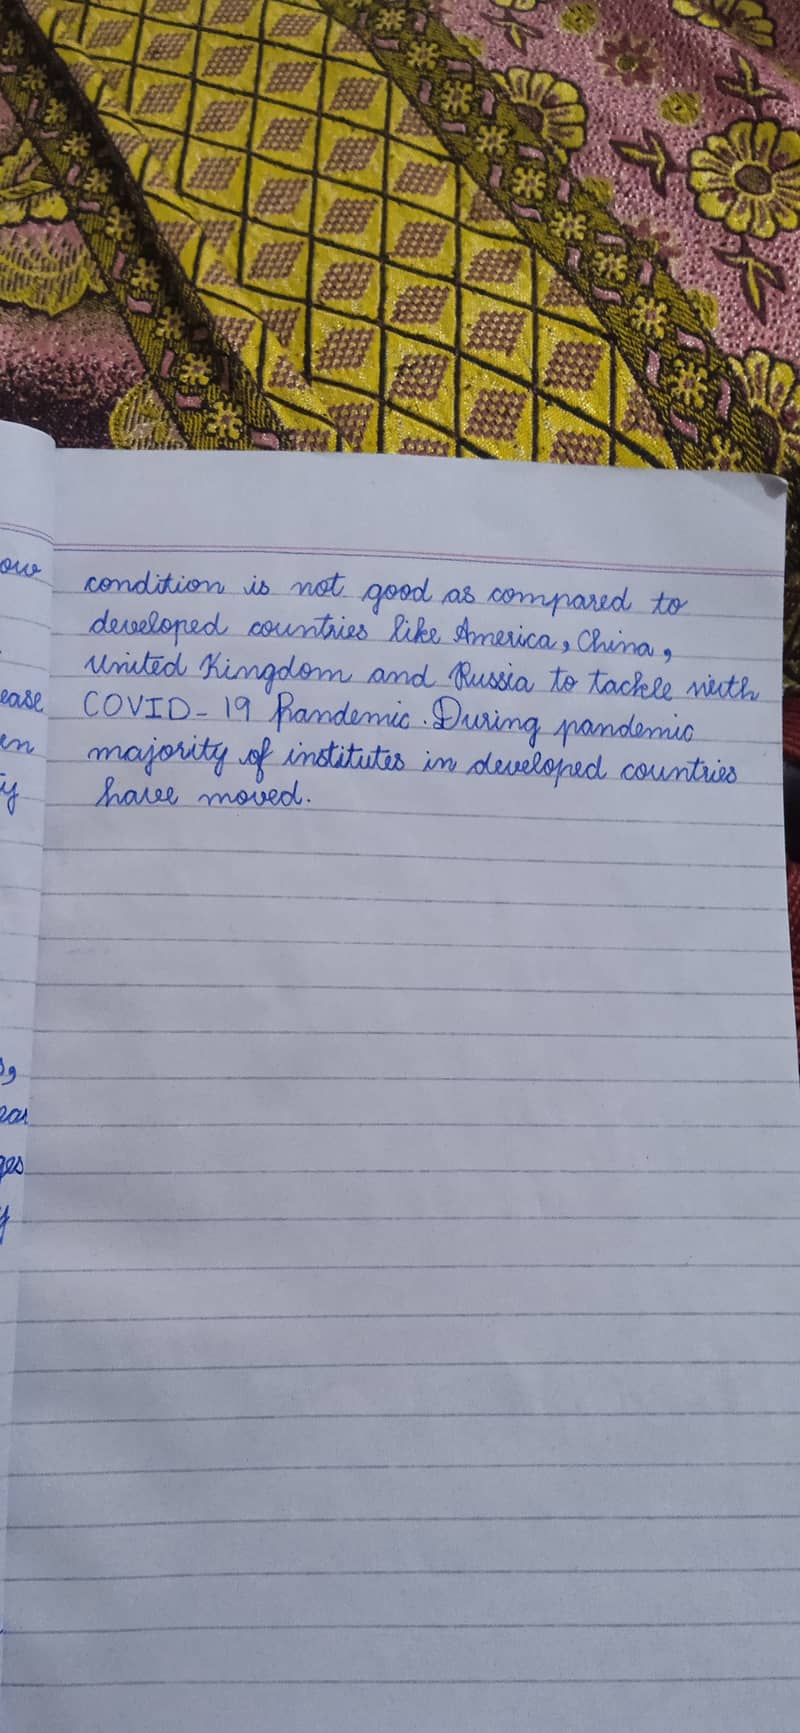 condition is not good as compared to
developed countries like America, China,
United Kingdom and Russia to tackle with
COVID-19 Pandemic. During pandemic
majority of institutes in developed countries
have moved.